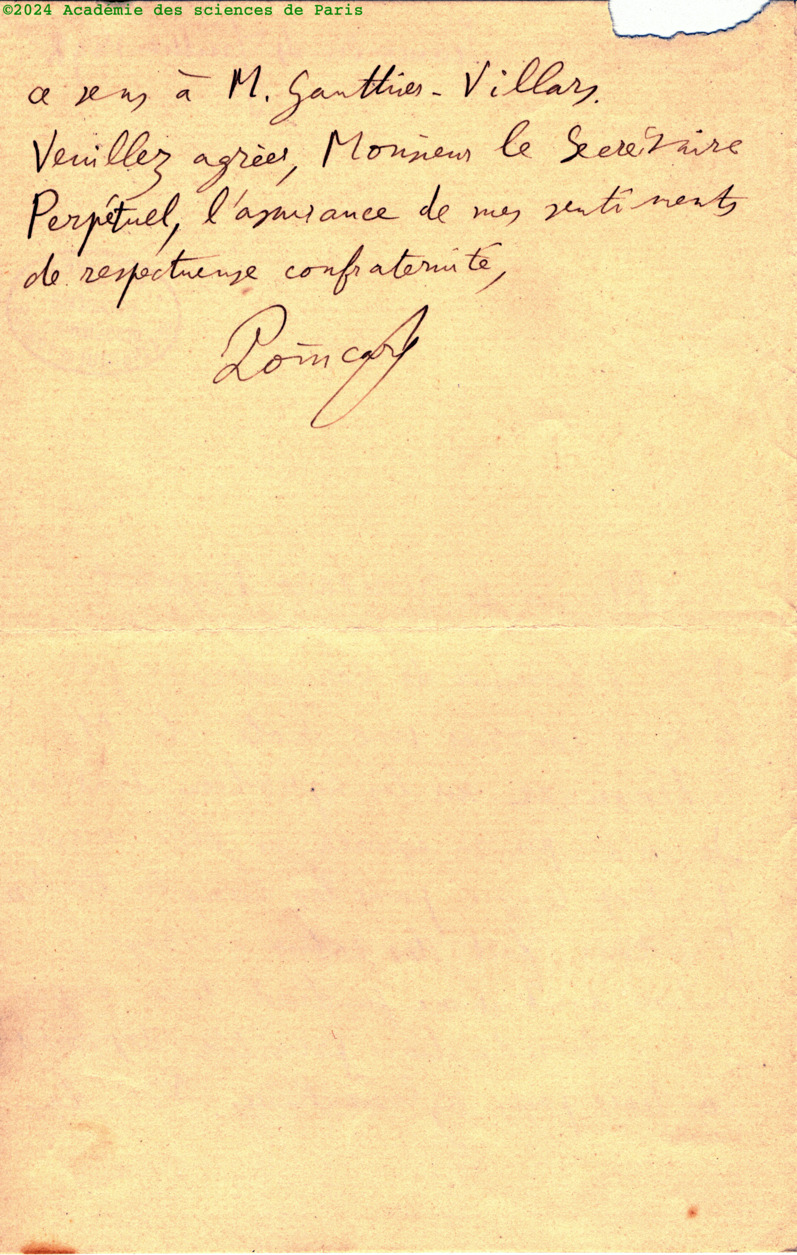 ©2024 Académie des sciences de Paris
ce sens à M. Gauthier-Villars.
Veuillez agréer, Monsieur le Secrétaire
Perpétuel, l'assurance de mes sentiments
de respectueuse confraternité,
Poincaré